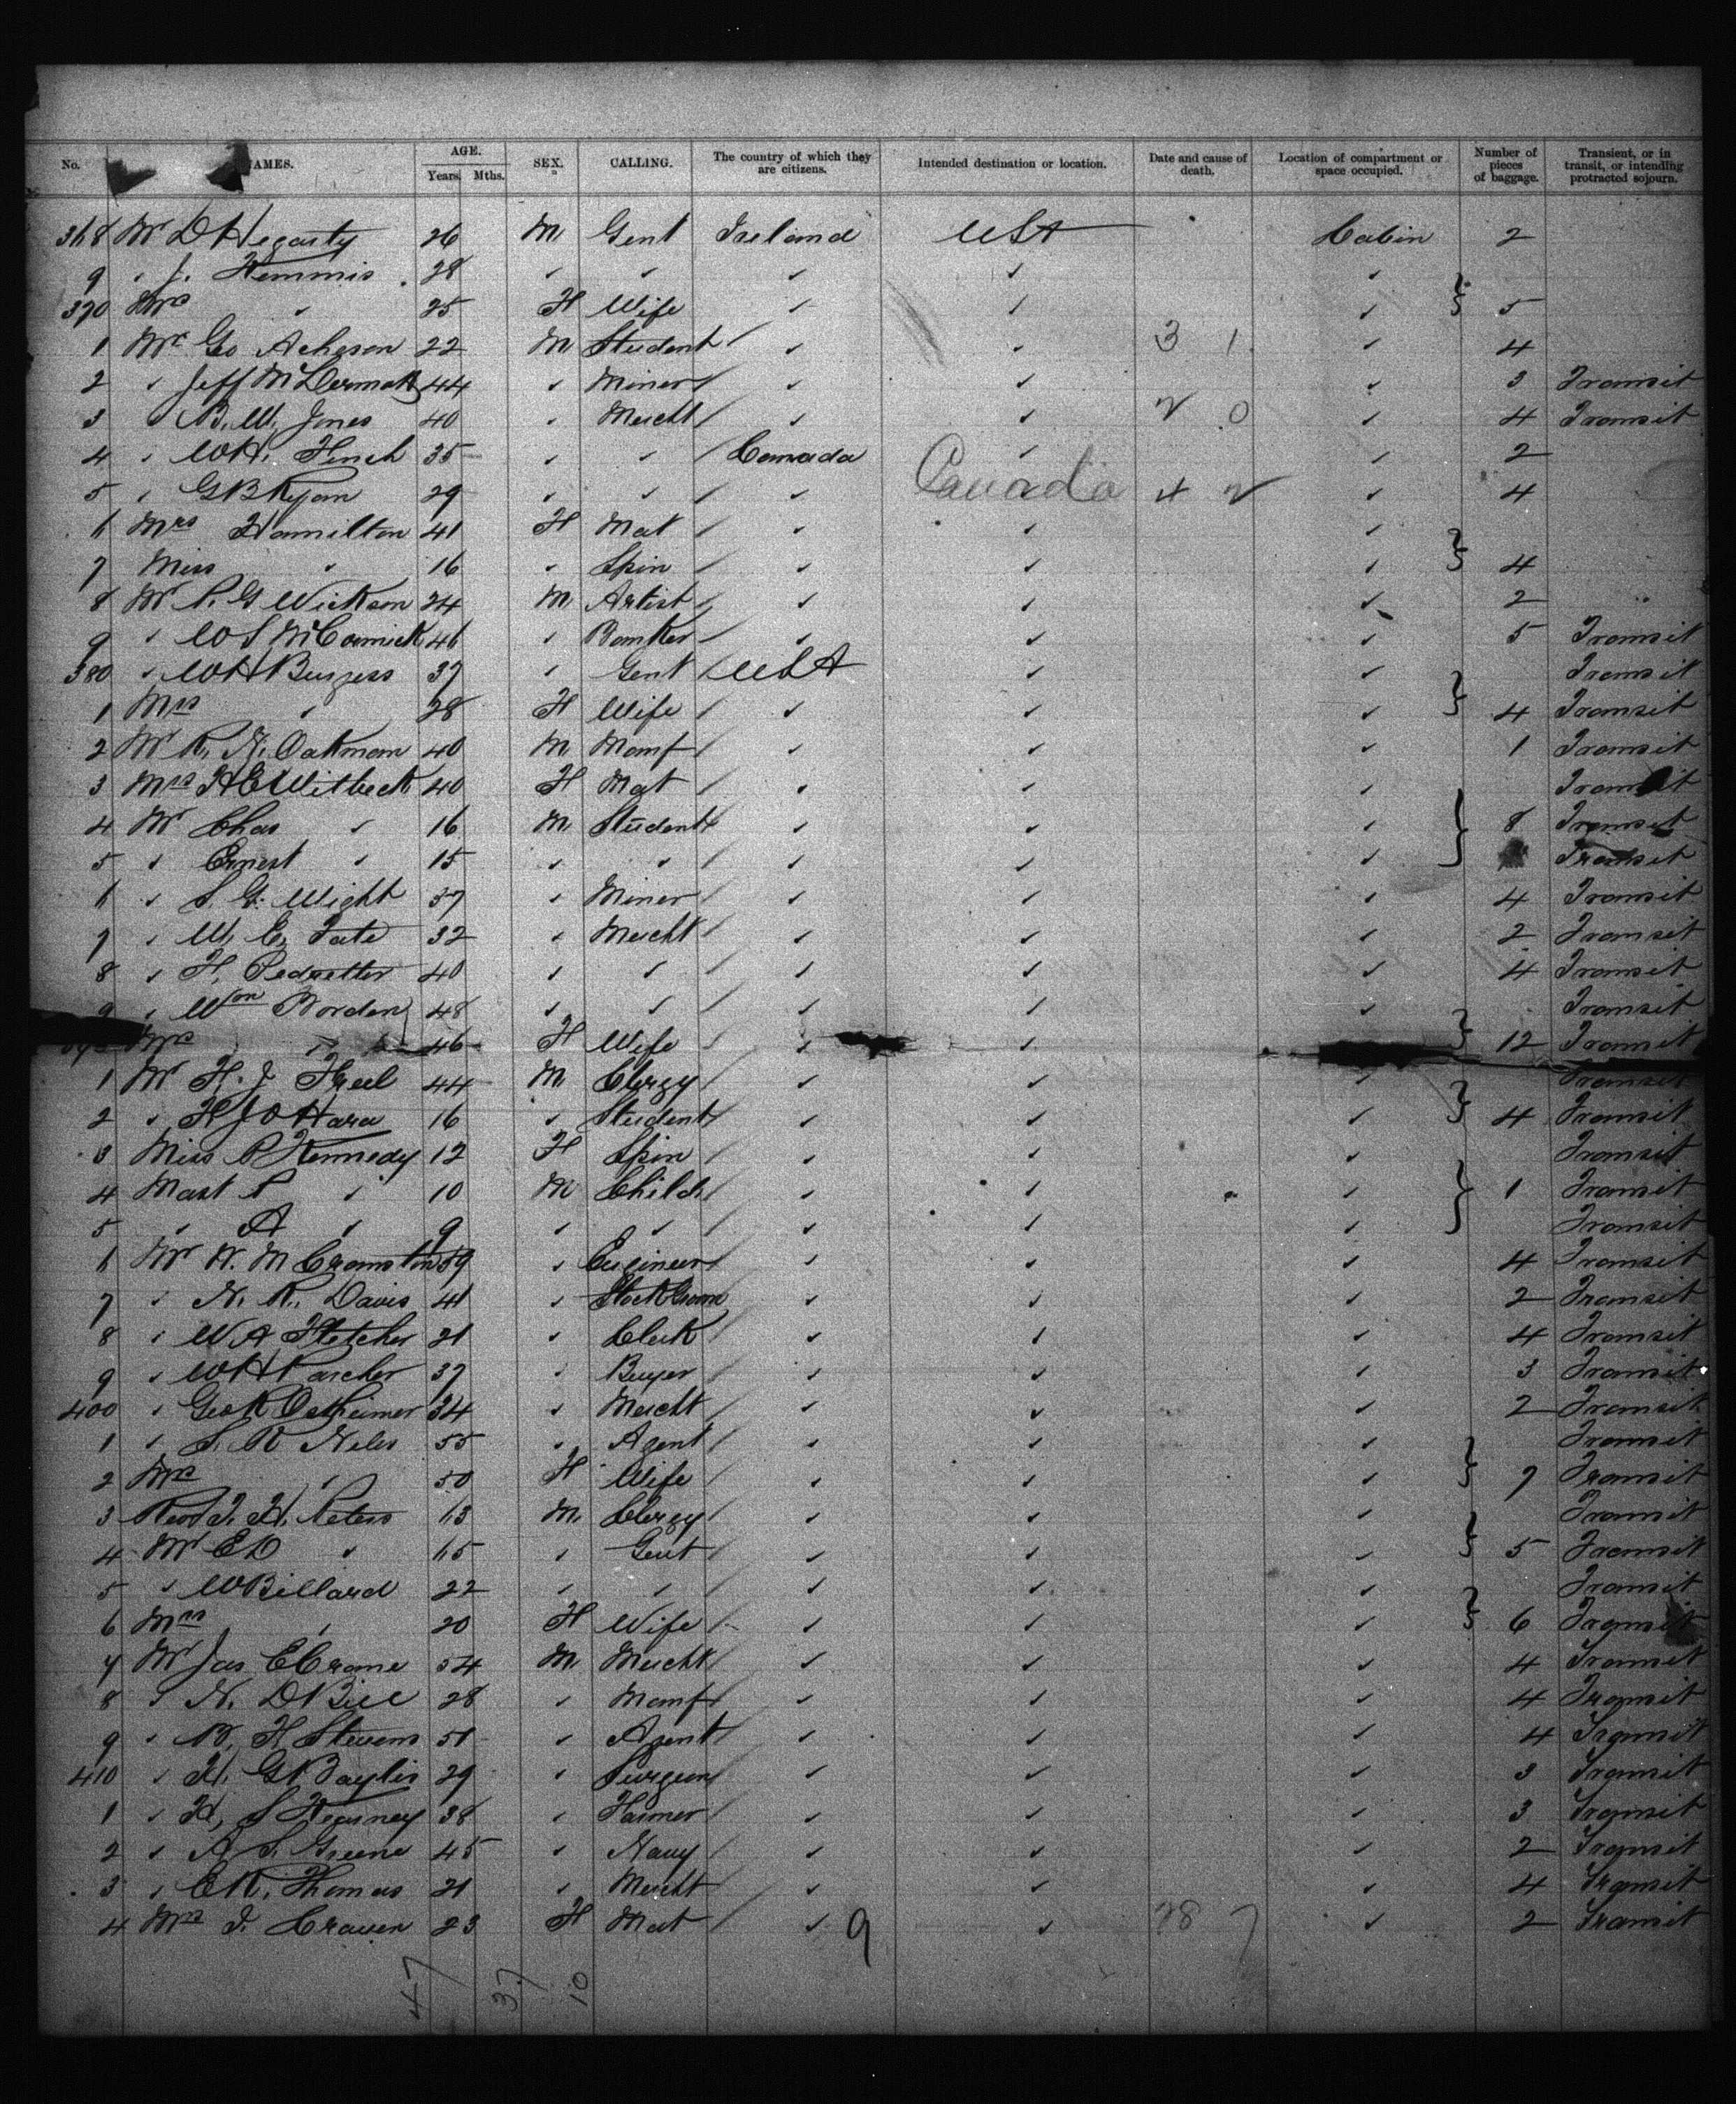 No. NAMES. AGE. Years. Mths. SEX. CALLING. The country of which they are citizens. Intended destination or location. Date and cause of death. Location of compartment or space occupied. Number of pieces of baggage. Transient, or in transit, or intending protracted sojourn.
368 Mr D Hegarty 26 M Gent Ireland USA Cabin 2
9 " J. Kemmis 28 " " " " "
370 Mrs " 25 F Wife " " " 5
1 Mr Geo Acheson 22 M Student " " 3 1 " 4
2 " Jeff McDermott 44 " Miner " " " 3 Transit
3 " B. W. Jones 40 " Mercht " " 2 0 " 4 Transit
4 " WH. Finch 35 " " Canada " " 2
5 " GB Ryan 29 " " " Canada 4 2 " 4
6 Mrs Hamilton 41 F Mat " " "
7 Miss " 16 " Spin " " " 4
8 Mr P. G Wickson 24 M Artist " " " 2
9 " W S McCormick 46 " Banker " " " 5 Transit
380 " WH Burgess 37 " Gent USA " " Transit
1 Mrs " 28 F Wife " " " 4 Transit
2 Mr R. N. Oakman 40 M Manf " " " 1 Transit
3 Mrs H E Witbeck 40 F Mat " " " Transit
4 Mr Chas " 16 M Student " " " 8 Transit
5 " Ernest " 15 " " " " " Transit
6 " S. G. Wight 37 " Miner " " " 4 Transit
7 " W. E. Tate 32 " Mercht " " " 2 Transit
8 " H. 40 " " " " " 4 Transit
9 " Wm Borden 48 " " " " " Transit
Mrs " 46 F Wife " " 12 Transit
1 Mr H. J Freel 44 M Clergy " " " Transit
2 " H J O Hara 16 " Student " " " 4 Transit
3 Miss P Kennedy 12 F Spin " " " Transit
4 Mast P " 10 M Child " " " 1 Transit
5 " A " 9 " " " " " Transit
6 Mr W. M Cramston 39 " Engineer " " " 4 Transit
7 " N. R. Davis 41 " Stock Grower " " " 2 Transit
8 " W A Fletcher 21 " Clerk " " " 4 Transit
9 " WH Karcher 37 " Buyer " " " 3 Transit
400 " Geo K Ostheimer 34 " Mercht " " " 2 Transit
1 " S. R Niles 55 " Agent " " " Transit
2 Mrs " 50 F Wife " " " 7 Transit
3 Revd T. H. Peters 63 M Clergy " " " Transit
4 Mr E D " 65 " Gent " " " 5 Transit
5 " W Billard 22 " " " " " Transit
6 Mrs " 20 F Wife " " " 6 Transit
7 Mr Jas E Crane 54 M Mercht " " " 4 Transit
8 " N. D Bill 28 " Manf " " " 4 Transit
9 " B. F Stevens 51 " Agent " " " 4 Transit
410 " H. G Baylis 29 " Surgeon " " " 3 Transit
1 " H, S Kearney 38 " Farmer " " " 3 Transit
2 " A S. Greene 45 " Navy " " " 2 Transit
3 " E R. Thomas 21 " Mercht " " " 4 Transit
4 Mrs T. Craven 23 F Mat " 9 " 28 7 " 2 Transit
47 37 10